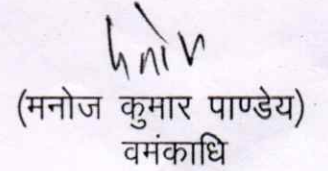 (मनोज कुमार पाण्डेय)
वमंकाधि